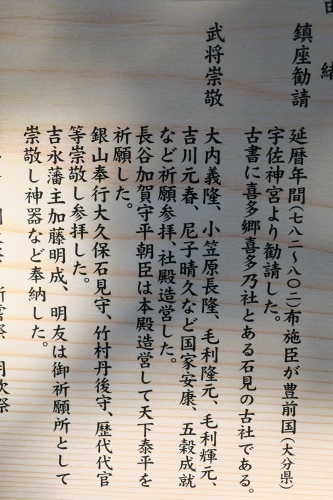 由緒
鎮座勧請
延暦年間(七八二~八〇二)布施臣が豊前国(大分県)
宇佐神宮より勧請した。
古書に喜多郷喜多乃社とある石見の古社である。
武将崇敬
大内義隆、小笠原長隆、毛利隆元、毛利輝元、
吉川元春、尼子晴久など国家安康、五穀成就
など祈願参拝、社殿造営した。
長谷加賀守平朝臣は本殿造営して天下泰平を
祈願した。
銀山奉行大久保石見守、竹村丹後守、歴代代官
等崇敬し参拝した。
吉永藩主加藤明成、明友は御祈願所として
崇敬し神器など奉納した。